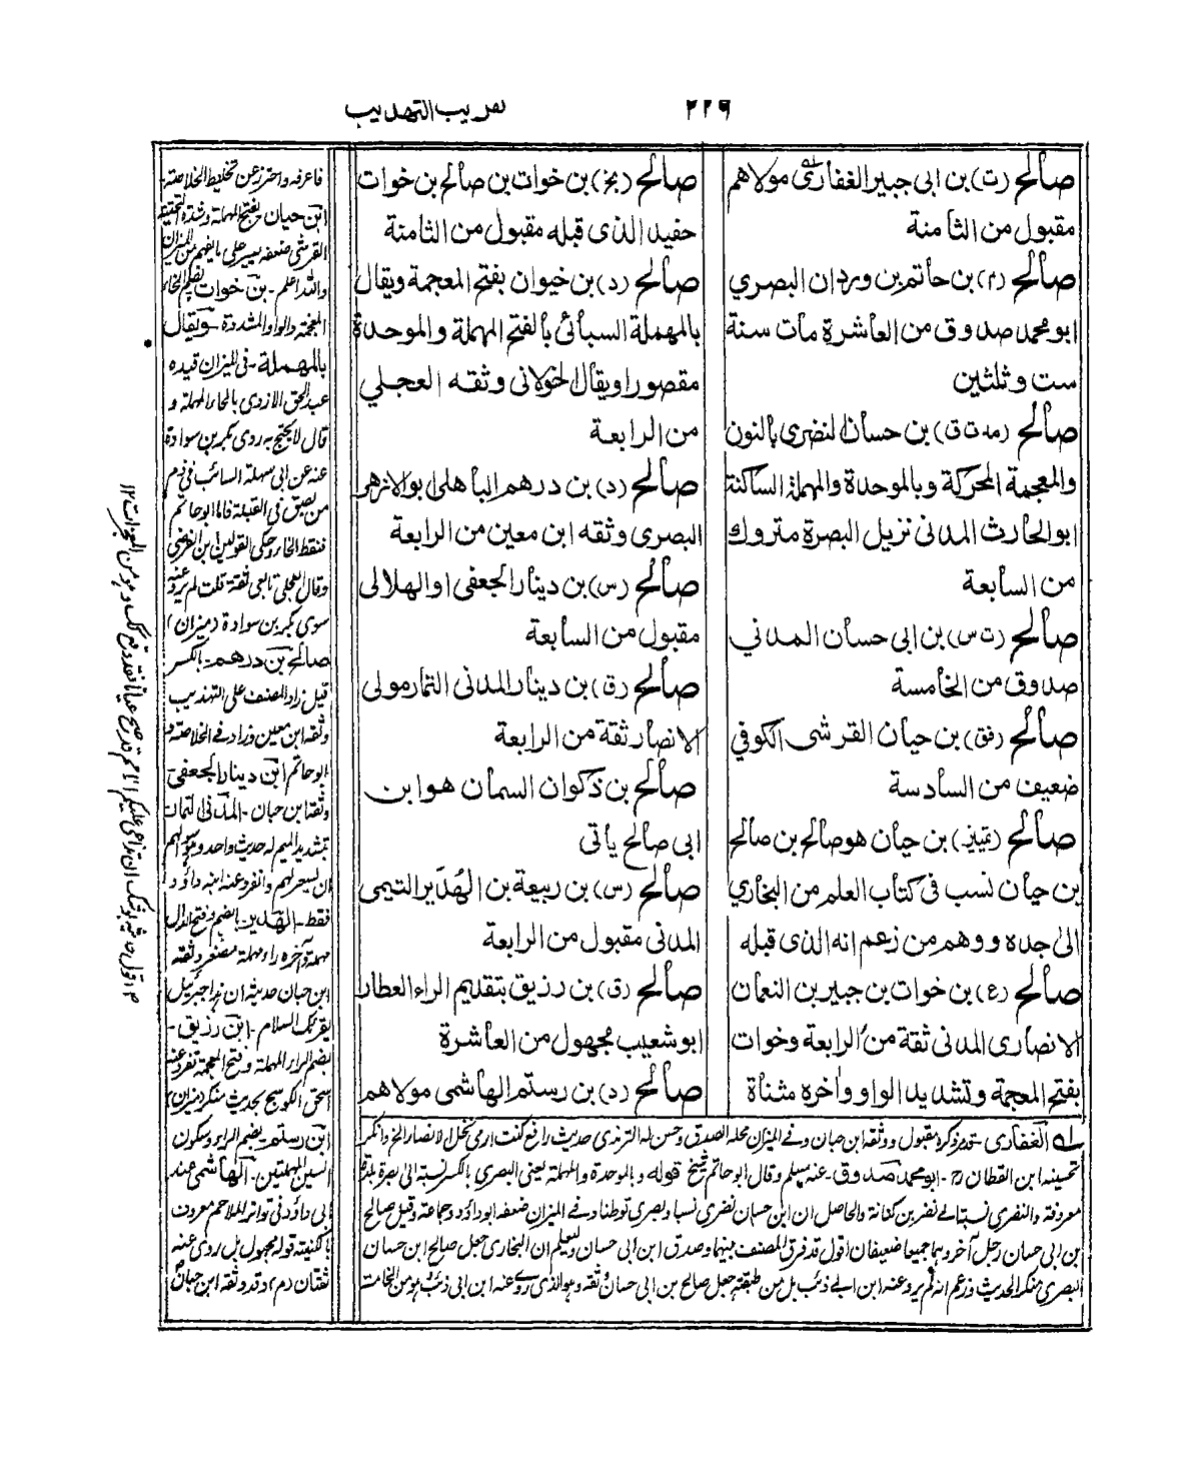 ٢٢٩
تقريب التهذيب
صالح (ت) بن ابى جبير الغفارى مولاهم
مقبول من الثامنة
صالح (م) بن حاتم بن وردان البصري
ابو محمد صدوق من العاشرة مات سنة
ست وثلثين
صالح (مد ت ق) بن حسان النضرى بالنون
والمعجمة المحركة وبالموحدة والمهملة الساكنة
ابو الحارث المدنى نزيل البصرة متروك
من السابعة
صالح (ت س) بن ابى حسان المدني
صدوق من الخامسة
صالح (فق) بن حيان القرشى الكوفي
ضعيف من السادسة
صالح (تمييز) بن حيان هو صالح بن صالح
بن حيان نسب فى كتاب العلم من البخاري
الى جده ووهم من زعم انه الذى قبله
صالح (ع) بن خوات بن جبير بن النعمان
الانصارى المدنى ثقة من الرابعة وخوات
بفتح المعجمة وتشديد الواو واخره مثناة
صالح (بخ) بن خوات بن صالح بن خوات
حفيد الذى قبله مقبول من الثامنة
صالح (د) بن خيوان بفتح المعجمة ويقال
بالمهملة السبائى بالفتح المهملة والموحدة
مقصورا ويقال الخولانى وثقه العجلي
من الرابعة
صالح (د) بن درهم الباهلى ابو الازهر
البصرى وثقه ابن معين من الرابعة
صالح (س) بن دينار الجعفى او الهلالى
مقبول من السابعة
صالح (ق) بن دينار المدنى التمار مولى
الانصار ثقة من الرابعة
صالح بن ذكوان السمان هو ابن
ابى صالح يأتى
صالح (س) بن ربيعة بن الهُدَير التيمى
المدنى مقبول من الرابعة
صالح (ق) بن رزيق بتقديم الراء العطار
ابو شعيب مجهول من العاشرة
صالح (د) بن رستم الهاشمى مولاهم
فاعرفه واحترز عن تخليط الخلاصة-
ابن حيان بفتح المهملة وشدة التحتية
القرشى ضعفه
والله اعلم - بن خوات بفتح الخاء
المعجمة والواو المشددة - ويقال
بالمهملة - فى الميزان قيده
عبد الحق الازدى بالحاء المهملة و
قال لا يحتج به روى بكر بن سوادة
عنه عن ابى سهلة السائب فى ذم
من بصق فى القبلة فاما ابو حاتم
فنقط الخاء وحكى القولين ابن الفرضى
وقال العجلى تابعى ثقة قلت لم يرو عنه
سوى بكر بن سوادة (ميزان)
صالح بن درهم - الكسر
قيل زاد المصنف على التهذيب
وثقه ابن معين وزاد فى الخلاصة و
ابو حاتم ابن دينار الجعفى
وثقه ابن حبان - المدنى التمار
بتشديد الميم له حديث واحد وهو سؤالهم
ان يسعر لهم وانفرد عنه ابنه داؤد
فقط - الهدير بالضم وفتح الدال
مهملة وآخره راء مهملة مصغر وثقه
ابن حبان حديثه ان هذا جبرئيل
يقرئك السلام - ابن رزيق -
بضم الراء المهملة وفتح المعجمة تفرد عنه
اسحق الكوسج بحديث منكر (ميزان)
ابن رستم - بضم الراء وسكون
السين المهملتين - الهاشمى عند
ابى داؤد فى تواتر الملاحم معروف
بالكنيته قوله مجهول بل روى عنه
ثقتان (م) وقد وثقه ابن حبان
له الغفارى - قد ذكره مقبول ووثقه ابن حبان وفى الميزان محله الصدق وحسن له الترمذى حديث رافع كنت ارمى نخل الانصار الخ وانكر
تحسينه ابن القطان - ابو محمد صدوق - عنه مسلم وقال ابو حاتم شيخ قوله وبالموحدة والمهملة يعنى البصري بالكسر نسبة الى بصرة بلدة
معروفة والنضرى نسبة الى نضر بن كنانة والحاصل ان ابن حسان نضرى نسبا وبصرى توطنا وفى الميزان ضعفه ابو داؤد وجماعة وقيل صالح
بن ابى حسان رجل آخر وهما جميعا ضعيفان اقول قد فرق المصنف بينهما وصدق ابن ابى حسان وليعلم ان البخارى جعل صالح ابن حسان
البصرى منكر الحديث وزعم انه لم يرو عنه ابن ابى ذئب بل من طبقته جعل صالح بن ابى حسان وثقه وهو الذى روى عنه ابن ابى ذئب وهو من الخامسة